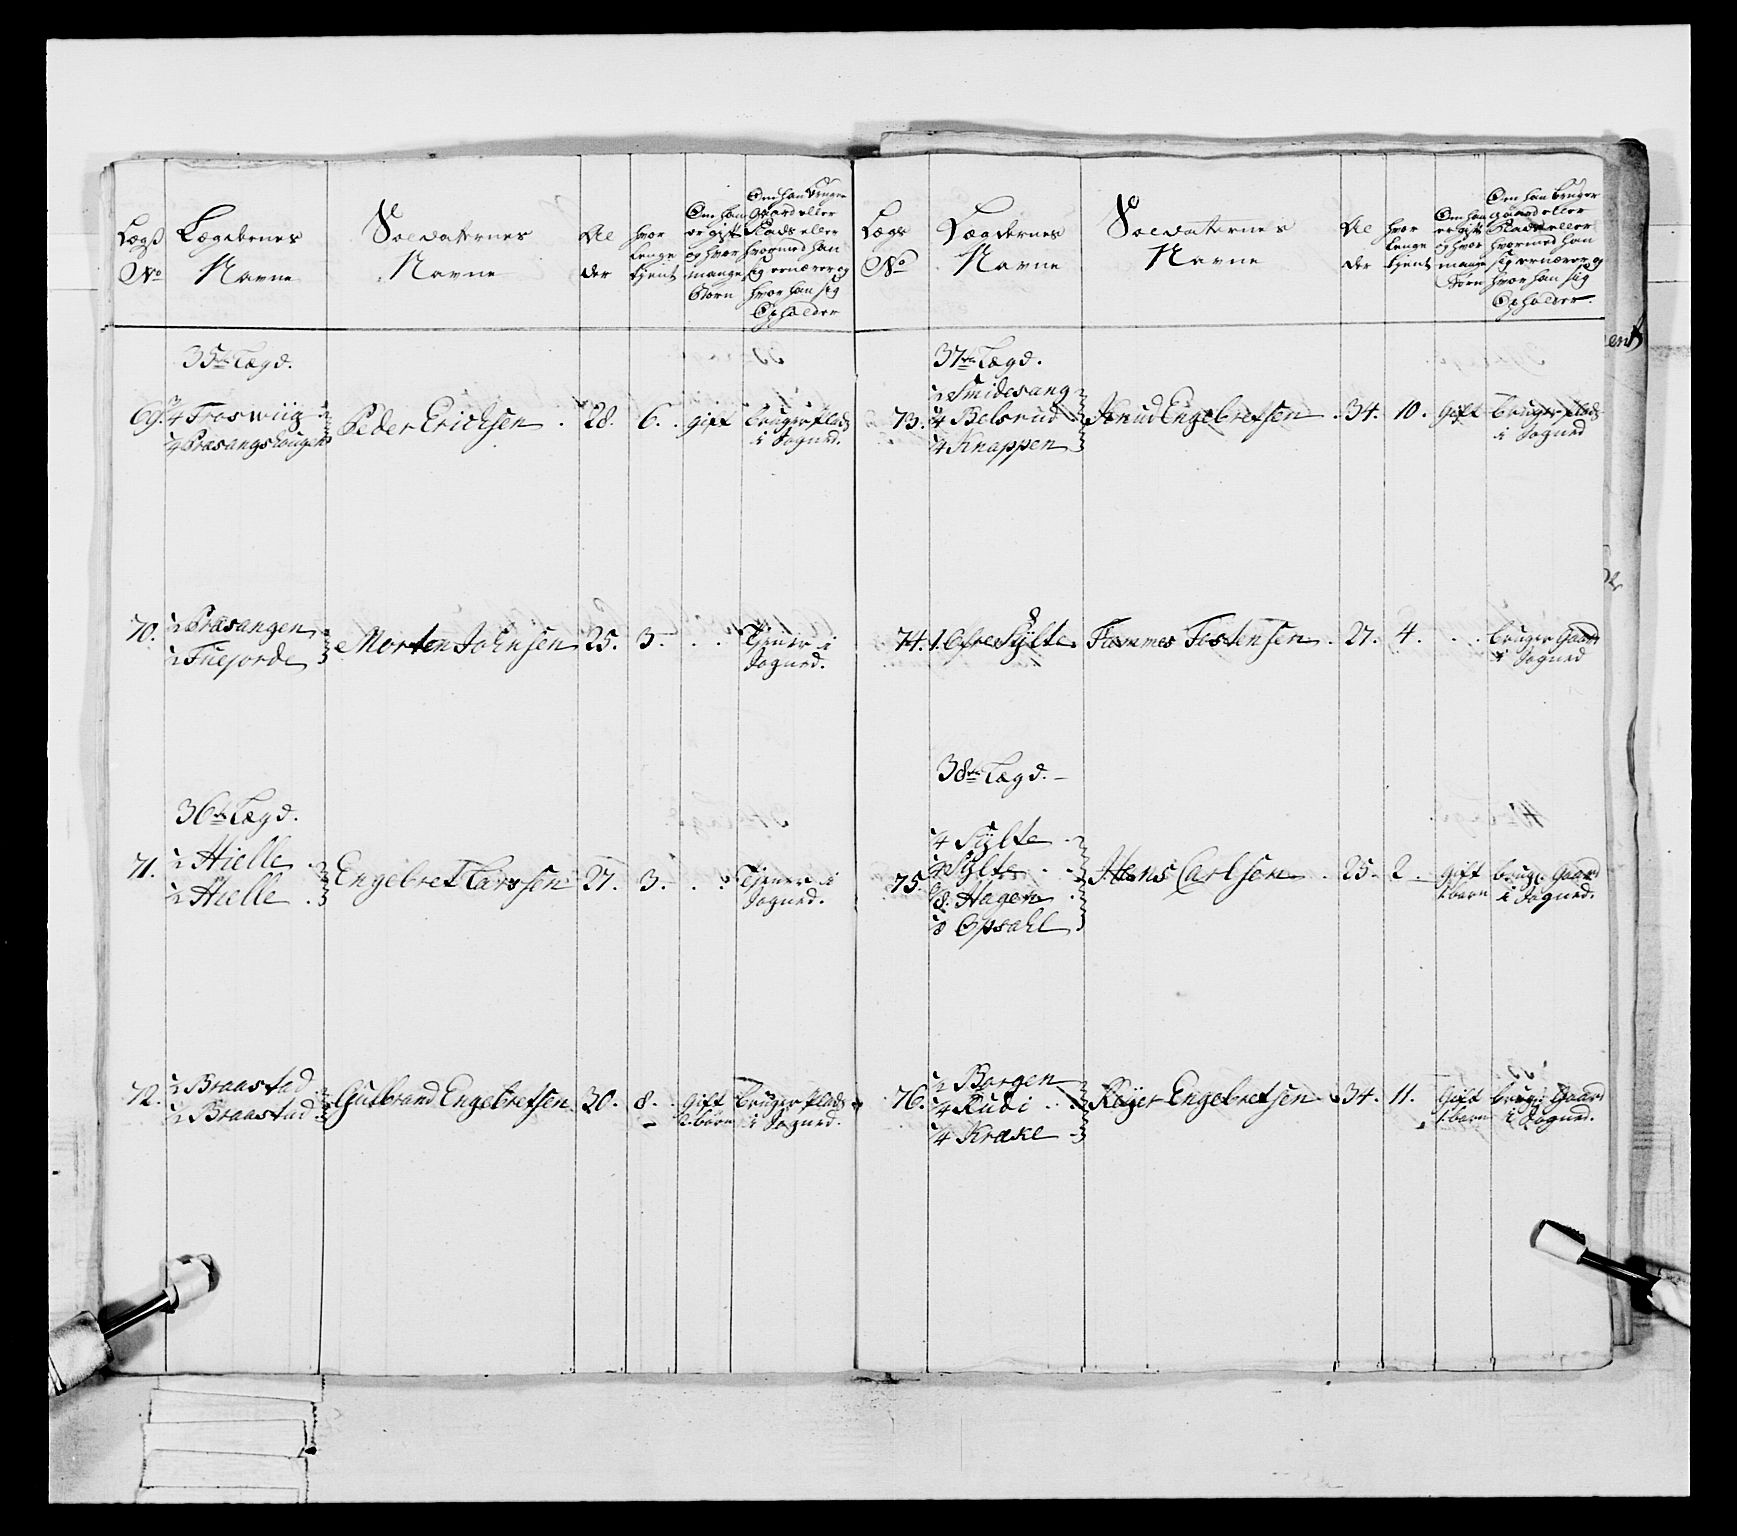 Lægs
No
Lægdernes
Navne
Soldaternes
Navne
Al
der
hvor
længe
tjent
Om han
er gift
og hvor
mange
Børn
Om han bruger
gaard eller
Plads eller
hvormed han
sig ernærer og
hvor han sig
Opholder
35te Lægd.
69.
1/4
Peder Erichsen
28.
6.
gift
bruger plads
i Sogned.
70.
1/2 Præsangen
1/2
Morten Johnsen
25.
3.
Tjener i
Sogned.
36te Lægd.
71.
1/2 Hielle
1/2 Hielle
Engebret Larssen
27.
3.
Tjener i
Sogned.
72.
1/2 Braastad
1/2 Braastad
Gulbrand Engebretsen
30.
8.
gift
2. børn
bruger plads
i Sogned.
Lægs
No
Lægdernes
Navne
Soldaternes
Navne
Al
der
hvor
længe
tjent
Om han
er gift
og hvor
mange
Børn
Om han bruger
gaard eller
Plads eller
hvormed han
sig ernærer og
hvor han sig
Opholder
37te Lægd.
73.
1/2 Smidesang
1/4 Belsrud
1/4 Knappen
Knud Engebretsen
34.
10.
Gift
bruger plads
i Sogned
74.
1. Øfre Sylte
Tostensen
27.
4.
bruger Gaard
i Sogned
38te Lægd.
75.
1/4 Sÿlte
Sylte
Hagen
1/8 Opsahl
Hans Carlsen
25.
2
gift
1. barn
brug. Gaard
i Sogned.
76.
1/2 Borgen
1/4 Rudi
1/4 Kræke
Engebretsen
34.
11.
Gift
1. barn
brug. Gaard
i Sogned.